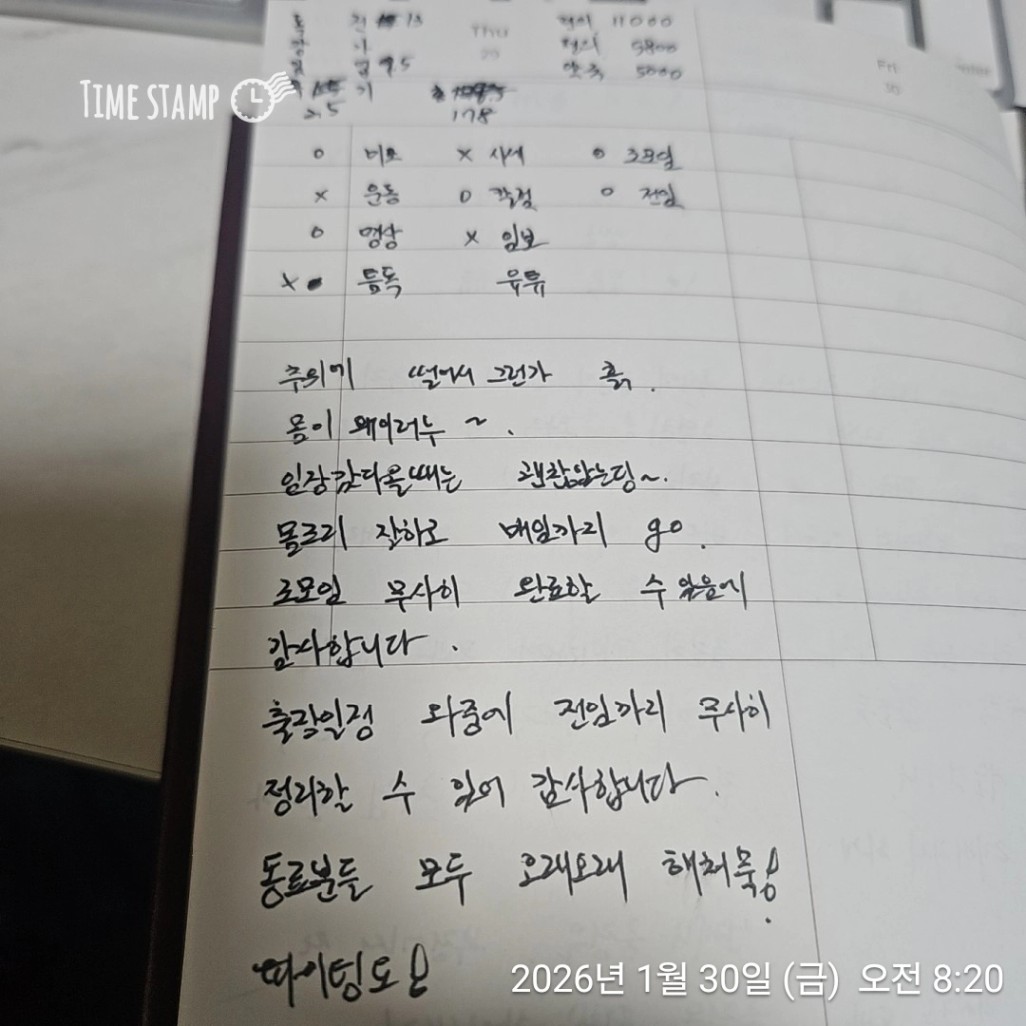 TIME STAMP
Thu
11000
5800
5000
178
Fri
o 비오 x 시세 o 조모임
x 운동 o 확정 o 전임
o 명상 x 임보
x 등독 유튜
추위에 떨어서 그런가 흙.
몸이 왜이러누 ~.
임장갔다올때는 괜찮았는딩~.
몸조리 잘하고 매임까지 go.
조모임 무사히 완료할 수 있음에
감사합니다.
출장일정 와중에 전임까지 무사히
정리할 수 있어 감사합니다.
동료분들 모두 오래오래 해쳐묵!
파이팅도요
2026년 1월 30일 (금) 오전 8:20